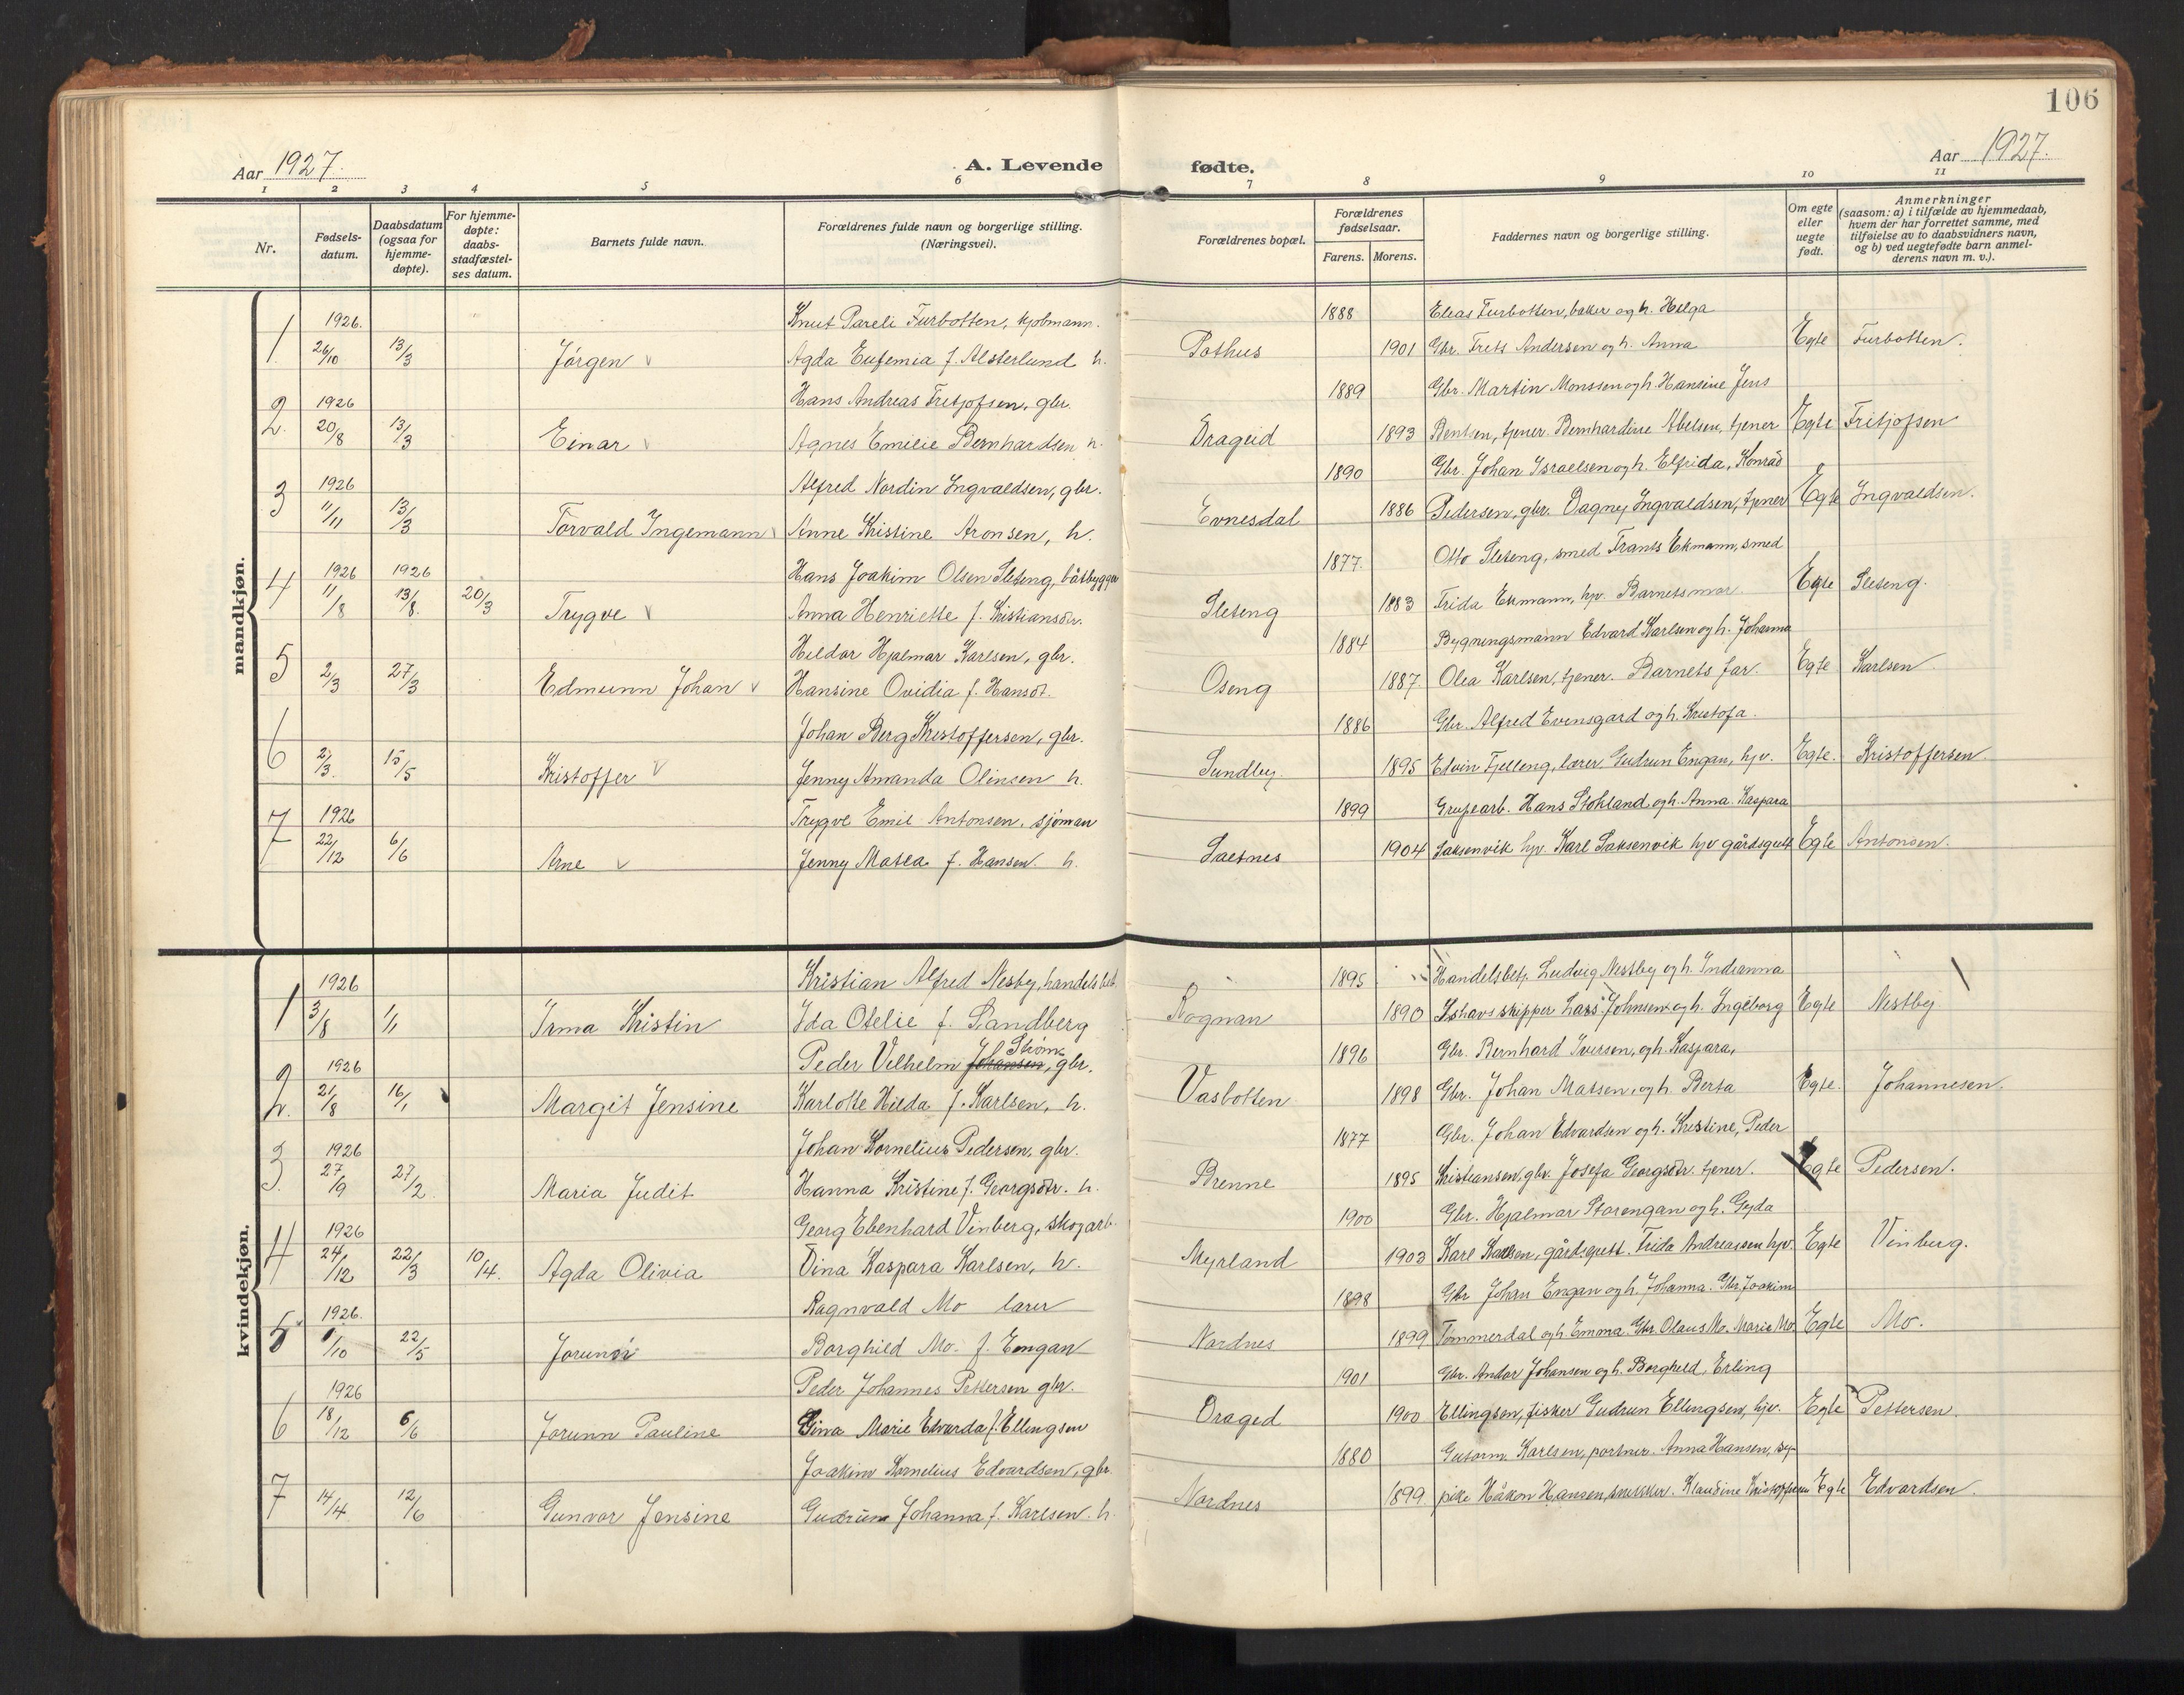 106
Aar 1927.
A. Levende fødte.
Aar 1927.
1 2 3 4 5 6 7 8 9 10 11
Nr. | Fødsels-datum. | Daabsdatum (ogsaa for hjemme-døpte). | For hjemme-døpte: daabs-stadfæstel-ses datum. | Barnets fulde navn. | Forældrenes fulde navn og borgerlige stilling. (Næringsvei). | Forældrenes bopæl. | Forældrenes fødselsaar. Farens. Morens. | Faddernes navn og borgerlige stilling. | Om egte eller uegte født. | Anmerkninger (saasom: a) i tilfælde av hjemmedaab, hvem der har forrettet samme, med tilføielse av to daabsvidners navn, og b) ved uegtefødte barn anmel-derens navn m. v.).
mandkjøn.
1926. Knut Pareli Furbotten, kjøbmann. 1888 Elias Furbotten, baker og h. Helga
1. 26/10 13/3 Jørgen v Agda Eufemia f. Alsterlund h. Pothus 1901 Gbr. Frets Andersen og h. Anna Egte Furbotten.
1926 Hans Andreas Fritjofsen, gbr. 1889 Gbr. Martin Monssen og h. Hansine Jens
2. 20/8 13/3 Einar v Agnes Emilie Bernhardsen h. Drageid 1893 Bentsen, tjener. Bernhardine Abelsen, tjener Egte Fritjofsen
1926 Alfred Nordin Ingvaldsen, gbr. 1890 Gbr. Johan Israelsen og h. Elfrida, Konrad
3 11/11 13/3 Torvald Ingemann v Anne Kristine Aronsen, h. Evnesdal 1886 Pedersen, gbr. Dagny Ingvaldsen, tjener Egte Ingvaldsen.
1926 1926 Hans Joakim Olsen Sleteng, båtbygger 1877. Otto Sleteng, smed Frants Ekmann, smed
4 11/8 13/8 20/3 Trygve v Anna Henriette f. Kristiansdr. Sleteng 1883 Frida Ekmann, hjv. Barnets mor. Egte Sleteng.
Hildor Hjalmar Karlsen, gbr. 1884 Bygningsmann Edvard Karlsen og h. Johanna
5 2/3 27/3 Edmunn Johan v Hansine Ovidia f. Hansdt. Oseng 1887. Olea Karlsen, tjener. Barnets far. Egte Karlsen
Johan Berg Kristoffersen, gbr. 1886 Gbr. Alfred Evensgard og h. Kristofa.
6 2/3. 15/5 Kristoffer v Jenny Amanda Olinsen h. Sundby 1895 Edvin Fjelleng, lærer, Gudrun Engan, hjv. Egte. Kristoffersen
1926 Trygve Emil Antonsen, sjøman 1899 Grubearb. Hans Stokland og h. Anna. Kaspara
7 22/12 6/6 Arne v Jenny Matea f. Hansen. h. Saetnes 1904 Saksenvik hjv. Karl Saksenvik hjv gårdsgutt Egte Antonsen.
kvindekjøn.
1926 Kristian Alfred Nesby, handelsbet. 1895 Handelsbetj. Ludvig Nestby og h. Indianna
1 3/8 1/1 Irma Kristin Ida Otelie f. Sandberg Rognan 1890 Ishavsskipper Lars Johnsen og h. Ingeborg Egte Nestby
1926 Peder Vilhelm Johansen, gbr. 1896 Gbr. Bernhard Iversen, og h. Kaspara,
2. 21/8 16/1 Margit Jensine Karlotte Hilda f. Karlsen, h. Vasbotten 1898 Gbr. Johan Matsen, og h. Berta Egte. Johannesen.
1926 Johan Kornelius Pedersen, gbr. 1877 Gbr. Johan Edvardsen og h. Kristine, Peder
3. 27/9 27/2 Maria Judit Hanna Kristine f. Georgsdtr. h. Brenne 1895 Kristiansen, gbr. Josefa Georgsdtr. tjener. Egte Pedersen.
1926 Georg Ebenhard Vinberg, skogarb. 1900 Gbr. Hjalmar Storengan og h. Gyda
4 24/12 22/3 10/4. Agda Olivia Dina Kaspara Karlsen, h. Myrland 1903 Karl Karlsen, gårdsgutt. Frida Andreassen hjv. Egte Vinberg.
1926. Ragnvald Mo lærer 1898 Gbr Johan Engan og h. Johanna. Gbr. Joakim
5 1/10 22/5 Jorunn Borghild Mo. f. Engan Nordnes 1899 Tømmerdal og h. Emma. Gbr. Olaus Mo. Marie Mo Egte Mo.
1926 Peder Johannes Pettersen gbr. 1901 Gbr. Andor Johansen og h. Borghild, Erling
6 18/12 6/6 Jorunn Pauline Gina Marie Edvarda f. Ellingsen Draged 1900 Ellingsen, fisker Gudrun Ellingsen, hjv. Egte Pettersen.
Joakim Kornelius Edvardsen, gbr. 1880 Gutorm Karlsen, portner. Anna Hansen, sy-
7 14/4 12/6 Gunvor Jensine Gudrun Johanna f. Karlsen. h. Nordnes 1899. pike Håkon Hansen, snekker. Klaudine Kristoffersen Egte Edvardsen.